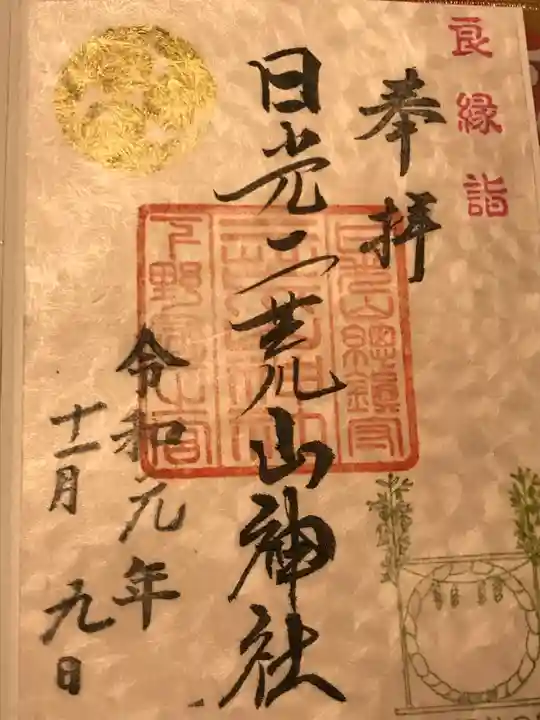 良縁詣
奉拝
日光二荒山神社
令和元年
十一月九日